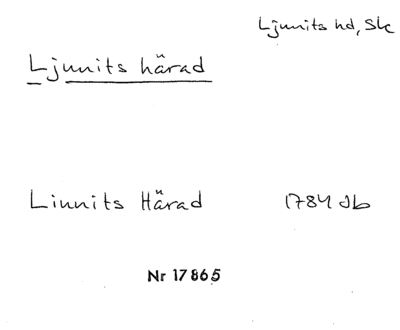 Ljunits hd, Sk
Ljunits härad
Linnits Härad 1784 Jb
Nr 17865